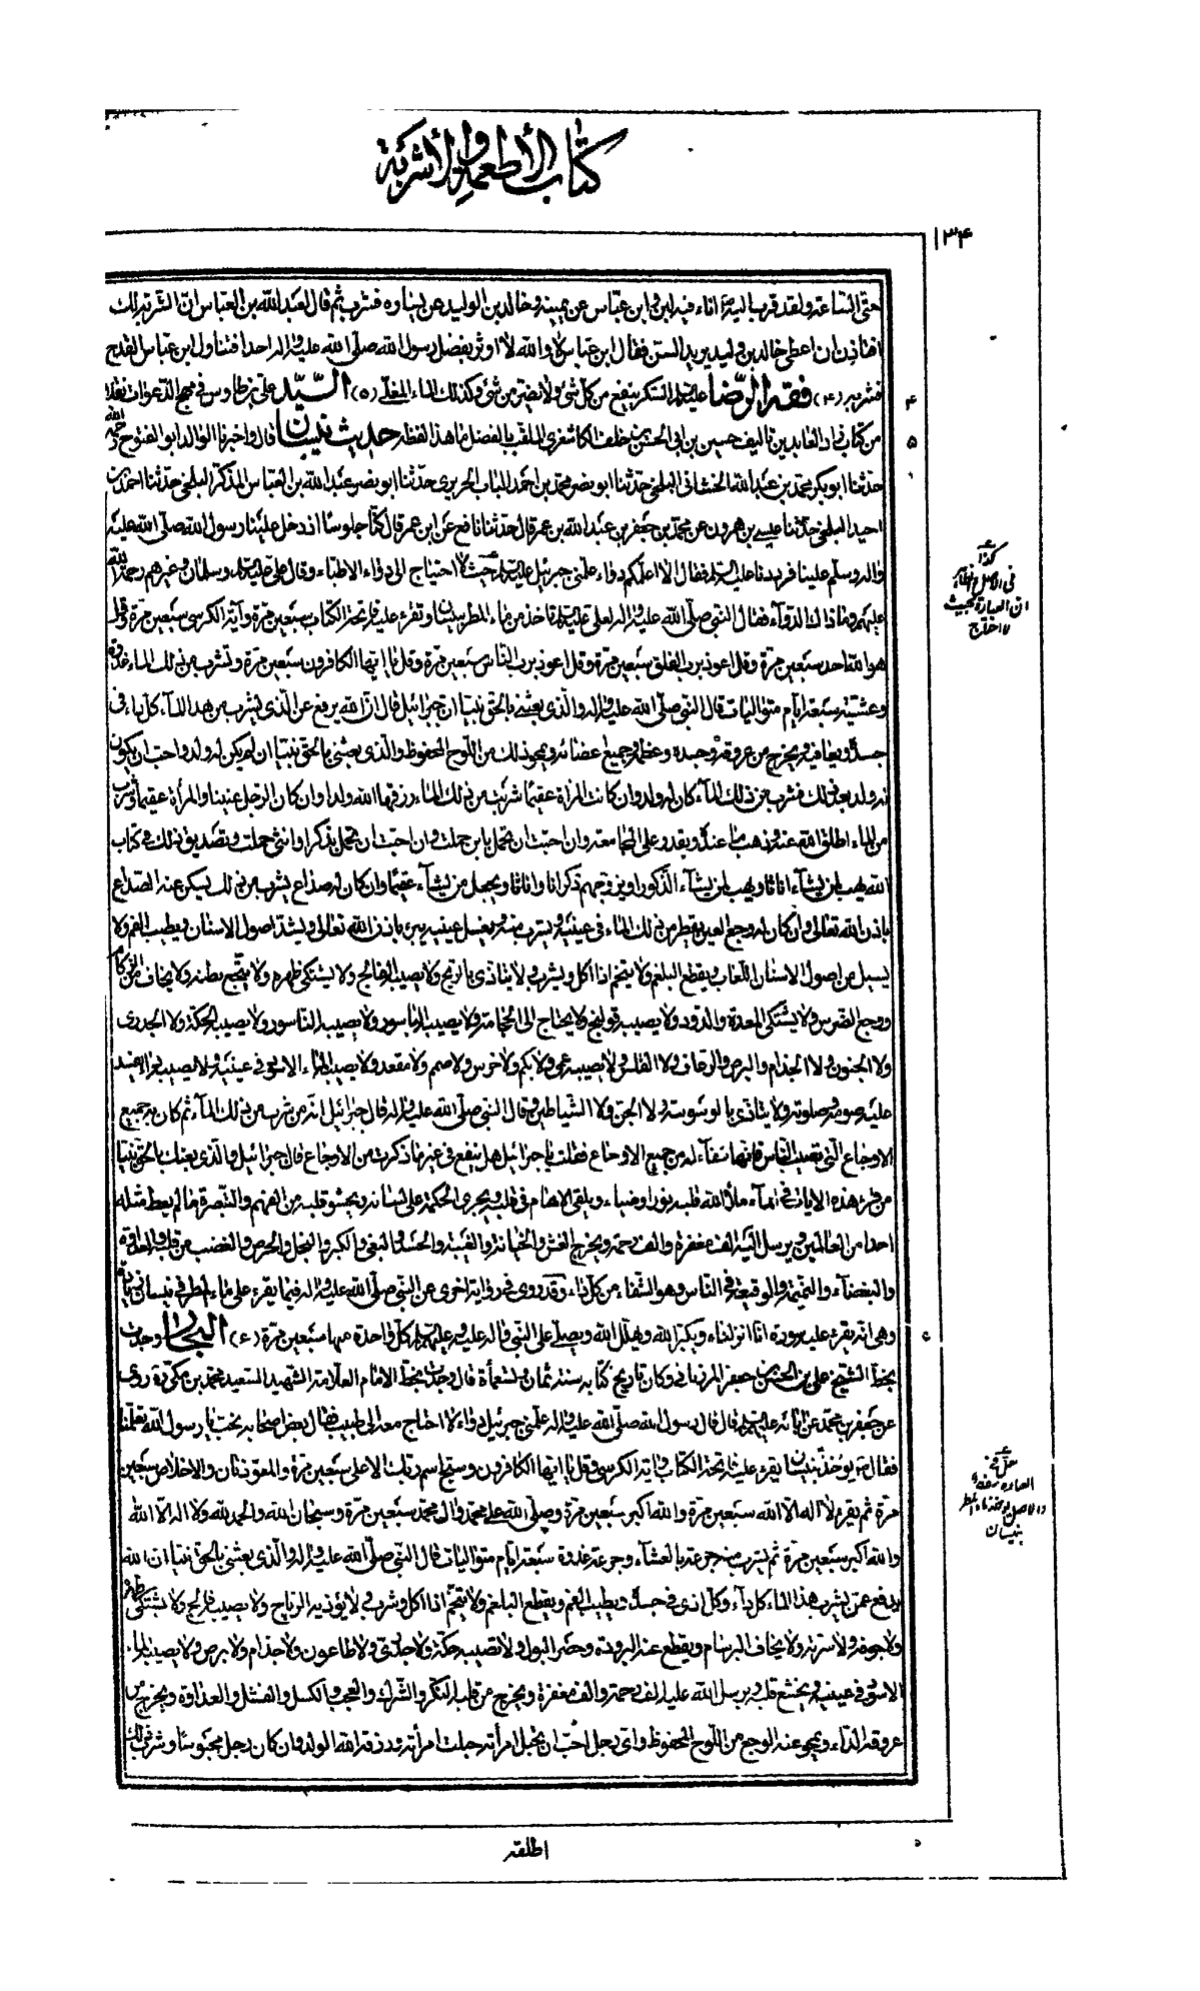 كتاب الأطعمة والأشربة
١٣۴
حتى الساعة ولقد قرب اليه اناء فيه لبن وابن عباس عن يمينه وخالد بن الوليد عن يساره فشرب ثم قال لعبد الله بن العباس ان الشربة لك
افتاذن ان اعطى خالد بن وليد يريد السن فقال ابن عباس لا والله لا اوثر بفضل رسول الله صلى الله عليه واله احدا فتناول ابن عباس القدح
فشربه (۴) فقه الرضا عليه السلم السكر ينفع من كل شئ ولا يضر من شئ وكذلك الماء المغلى (۵) السيد على بن طاوس في مهج الدعوات نقلا
من كتاب زاد العابدين تاليف حسين بن ابى الحسن بن خلف الكاشغرى الملقب بالفضل ما هذا لفظه حديث نيسان قال واخبرنا الوالد ابو الفتوح رحمه الله
حدثنا ابو بكر محمد بن عبد الله الخشانى البلخى حدثنا ابو نصر محمد بن احمد الباب الحريرى حدثنا ابو نصر عبد الله بن العباس المذكر البلخى حدثنا احمد بن
احيد البلخى حدثنا عيسى بن هرون عن محمد بن جعفر بن عبد الله بن عمر قال حدثنا نافع عن ابن عمر قال كنا جلوسا اذ دخل علينا رسول الله صلى الله عليه
واله وسلم علينا فرددنا عليه السلم فقال الا اعلمكم دواء علمنى جبرئيل عليه السلم حيث لا احتياج الى دواء الاطباء وقال على عليه السلم وسلمان وغيرهم رحمة الله
عليهم وما ذاك الدواء فقال النبى صلى الله عليه واله لعلى عليه السلم تاخذ من ماء المطر بنيسان وتقرء عليه فاتحة الكتاب سبعين مرة وآية الكرسى سبعين مرة وقل
هو الله احد سبعين مرة وقل اعوذ برب الفلق سبعين مرة وقل اعوذ برب الناس سبعين مرة وقل يا ايها الكافرون سبعين مرة وتشرب من ذلك الماء غدوة
وعشية سبعة ايام متواليات قال النبى صلى الله عليه واله والذى بعثنى بالحق نبيا ان جبرائيل قال ان الله يرفع عن الذى يشرب من هذا الماء كل داء فى
جسده ويعافيه ويخرج من عروقه وجسده وعظمه وجميع اعضائه ويمحو ذلك من اللوح المحفوظ والذى بعثنى بالحق نبيا ان لم يكن له ولد واحب ان يكون
له ولد بعد ذلك فشرب من ذلك الماء كان له ولد وان كانت المراة عقيما شربت من ذلك الماء رزقها الله ولدا وان كان الرجل عنينا والمراة عقيما وشرب
من الماء اطلق الله عنه وذهب ما عنده ويقدر على المجامعة وان احبت ان تحمل بابن حملت وان احبت ان تحمل بذكر او انثى حملت وتصديق ذلك فى كتاب
الله يهب لمن يشاء اناثا ويهب لمن يشاء الذكور او يزوجهم ذكرانا واناثا ويجعل من يشاء عقيما وان كان له صداع يشرب من ذلك يسكن عنه الصداع
باذن الله تعالى وان كان له وجع العين يقطر من ذلك الماء فى عينيه ويشرب منه ويغسل عينيه يبرء باذن الله تعالى ويشد اصول الاسنان ويطيب الفم ولا
يسيل من اصول الاسنان اللعاب ويقطع البلغم ولا يتخم اذا اكل وشرب ولا يتاذى بالريح ولا يصيبه الفالج ولا يشتكى ظهره ولا ييجع بطنه ولا يخاف الزكام
ووجع الضرس ولا يشتكى المعدة والدود ولا يصيبه قولنج ولا يحتاج الى الحجامة ولا يصيبه الباسور ولا يصيبه الناسور ولا يصيبه الحكة ولا الجدرى
ولا الجنون ولا الجذام والبرص والرعاف ولا القلس ولا يصيبه عمى ولا بكم ولا خرس ولا صمم ولا مقعد ولا يصيبه الماء الاسود فى عينيه ولا يصيبه داء يفسد
عليه صومه وصلوته ولا يتاذى بالوسوسة ولا الجن ولا الشياطين وقال النبى صلى الله عليه واله قال جبرائيل انه من شرب من ذلك الماء ثم كان به جميع
الاوجاع التى تصيب الناس فانها شفاء له من جميع الاوجاع فقلت يا جبرائيل هل ينفع فى غير ما ذكرت من الاوجاع قال جبرائيل والذى بعثك بالحق نبيا
من قرء هذه الايات فى الماء ملأ الله قلبه نورا وضياء ويلقى الالهام فى قلبه ويجرى الحكمة على لسانه ويحشو قلبه من الفهم والتبصرة ما لم يعط مثله
احدا من العالمين ويرسل اليه الف مغفرة والف رحمة ويخرج الغش والخيانة والغيبة والحسد والبغى والكبر والبخل والحرص والغضب من قلبه والعداوة
والبغضاء والنميمة والوقيعة فى الناس وهو الشفاء من كل داء وقد روى فى رواية اخرى عن النبى صلى الله عليه واله فيما يقرء على ماء المطر فى نيسان زيادة
وهى انه يقرء عليه سورة انا انزلناه ويكبر الله ويهلل الله ويصلى على النبى واله عليه وعليهم السلم كل واحدة منها سبعين مرة (۶) البحار وجدت
بخط الشيخ على بن الحسن بن جعفر المرزبانى وكان تاريخ كتابه سنة ثمان وتسعمأة قال وجدت بخط الامام العلامة الشهيد السعيد محمد بن مكى ره روى
عن جعفر بن محمد عن ابائه عليهم السلم قال قال رسول الله صلى الله عليه واله علمنى جبرئيل دواء لا احتاج معه الى طبيب فقال بعض اصحابه نحب يا رسول الله تعلمنا
فقال ص يؤخذ بنيسان يقرء عليه فاتحة الكتاب واية الكرسى وقل يا ايها الكافرون وسبح اسم ربك الاعلى سبعين مرة والمعوذتان والاخلاص سبعين
مرة ثم يقرء لا اله الا الله سبعين مرة والله اكبر سبعين مرة وصلى الله على محمد وال محمد سبعين مرة وسبحان الله والحمد لله ولا اله الا الله
والله اكبر سبعين مرة ثم يشرب منه جرعة بالعشاء وجرعة غدوة سبعة ايام متواليات قال النبى صلى الله عليه واله والذى بعثنى بالحق نبيا ان الله
يدفع عمن يشرب هذا الماء كل داء وكل اذى فى جسده ويطيب الفم ويقطع البلغم ولا يتخم اذا اكل وشرب ولا يؤذيه الرياح ولا يصيبه فالج ولا يشتكى ظهره
ولا جوفه ولا سرته ولا يخاف البرسام ويقطع عنه البرودة وحصر البول ولا تصيبه حكة ولا جدرى ولا طاعون ولا جذام ولا برص ولا يصيبه الماء
الاسود فى عينيه ويخشع قلبه ويرسل الله عليه الف رحمة والف مغفرة ويخرج من قلبه النكر والشرك والعجب والكسل والفشل والعداوة ويخرج من
عروقه الداء ويمحو عنه الوجع من اللوح المحفوظ واى رجل احب ان تحبل امرأته حبلت امرأته ورزقه الله الولد وان كان رجل محبوسا وشرب ذلك
اطلقه
۴
۵
۶
كذا
فى الاصل والظاهر
ان العبارة بحيث
لا احتاج
العبارة
والاصل يؤخذ ماء المطر
بنيسان